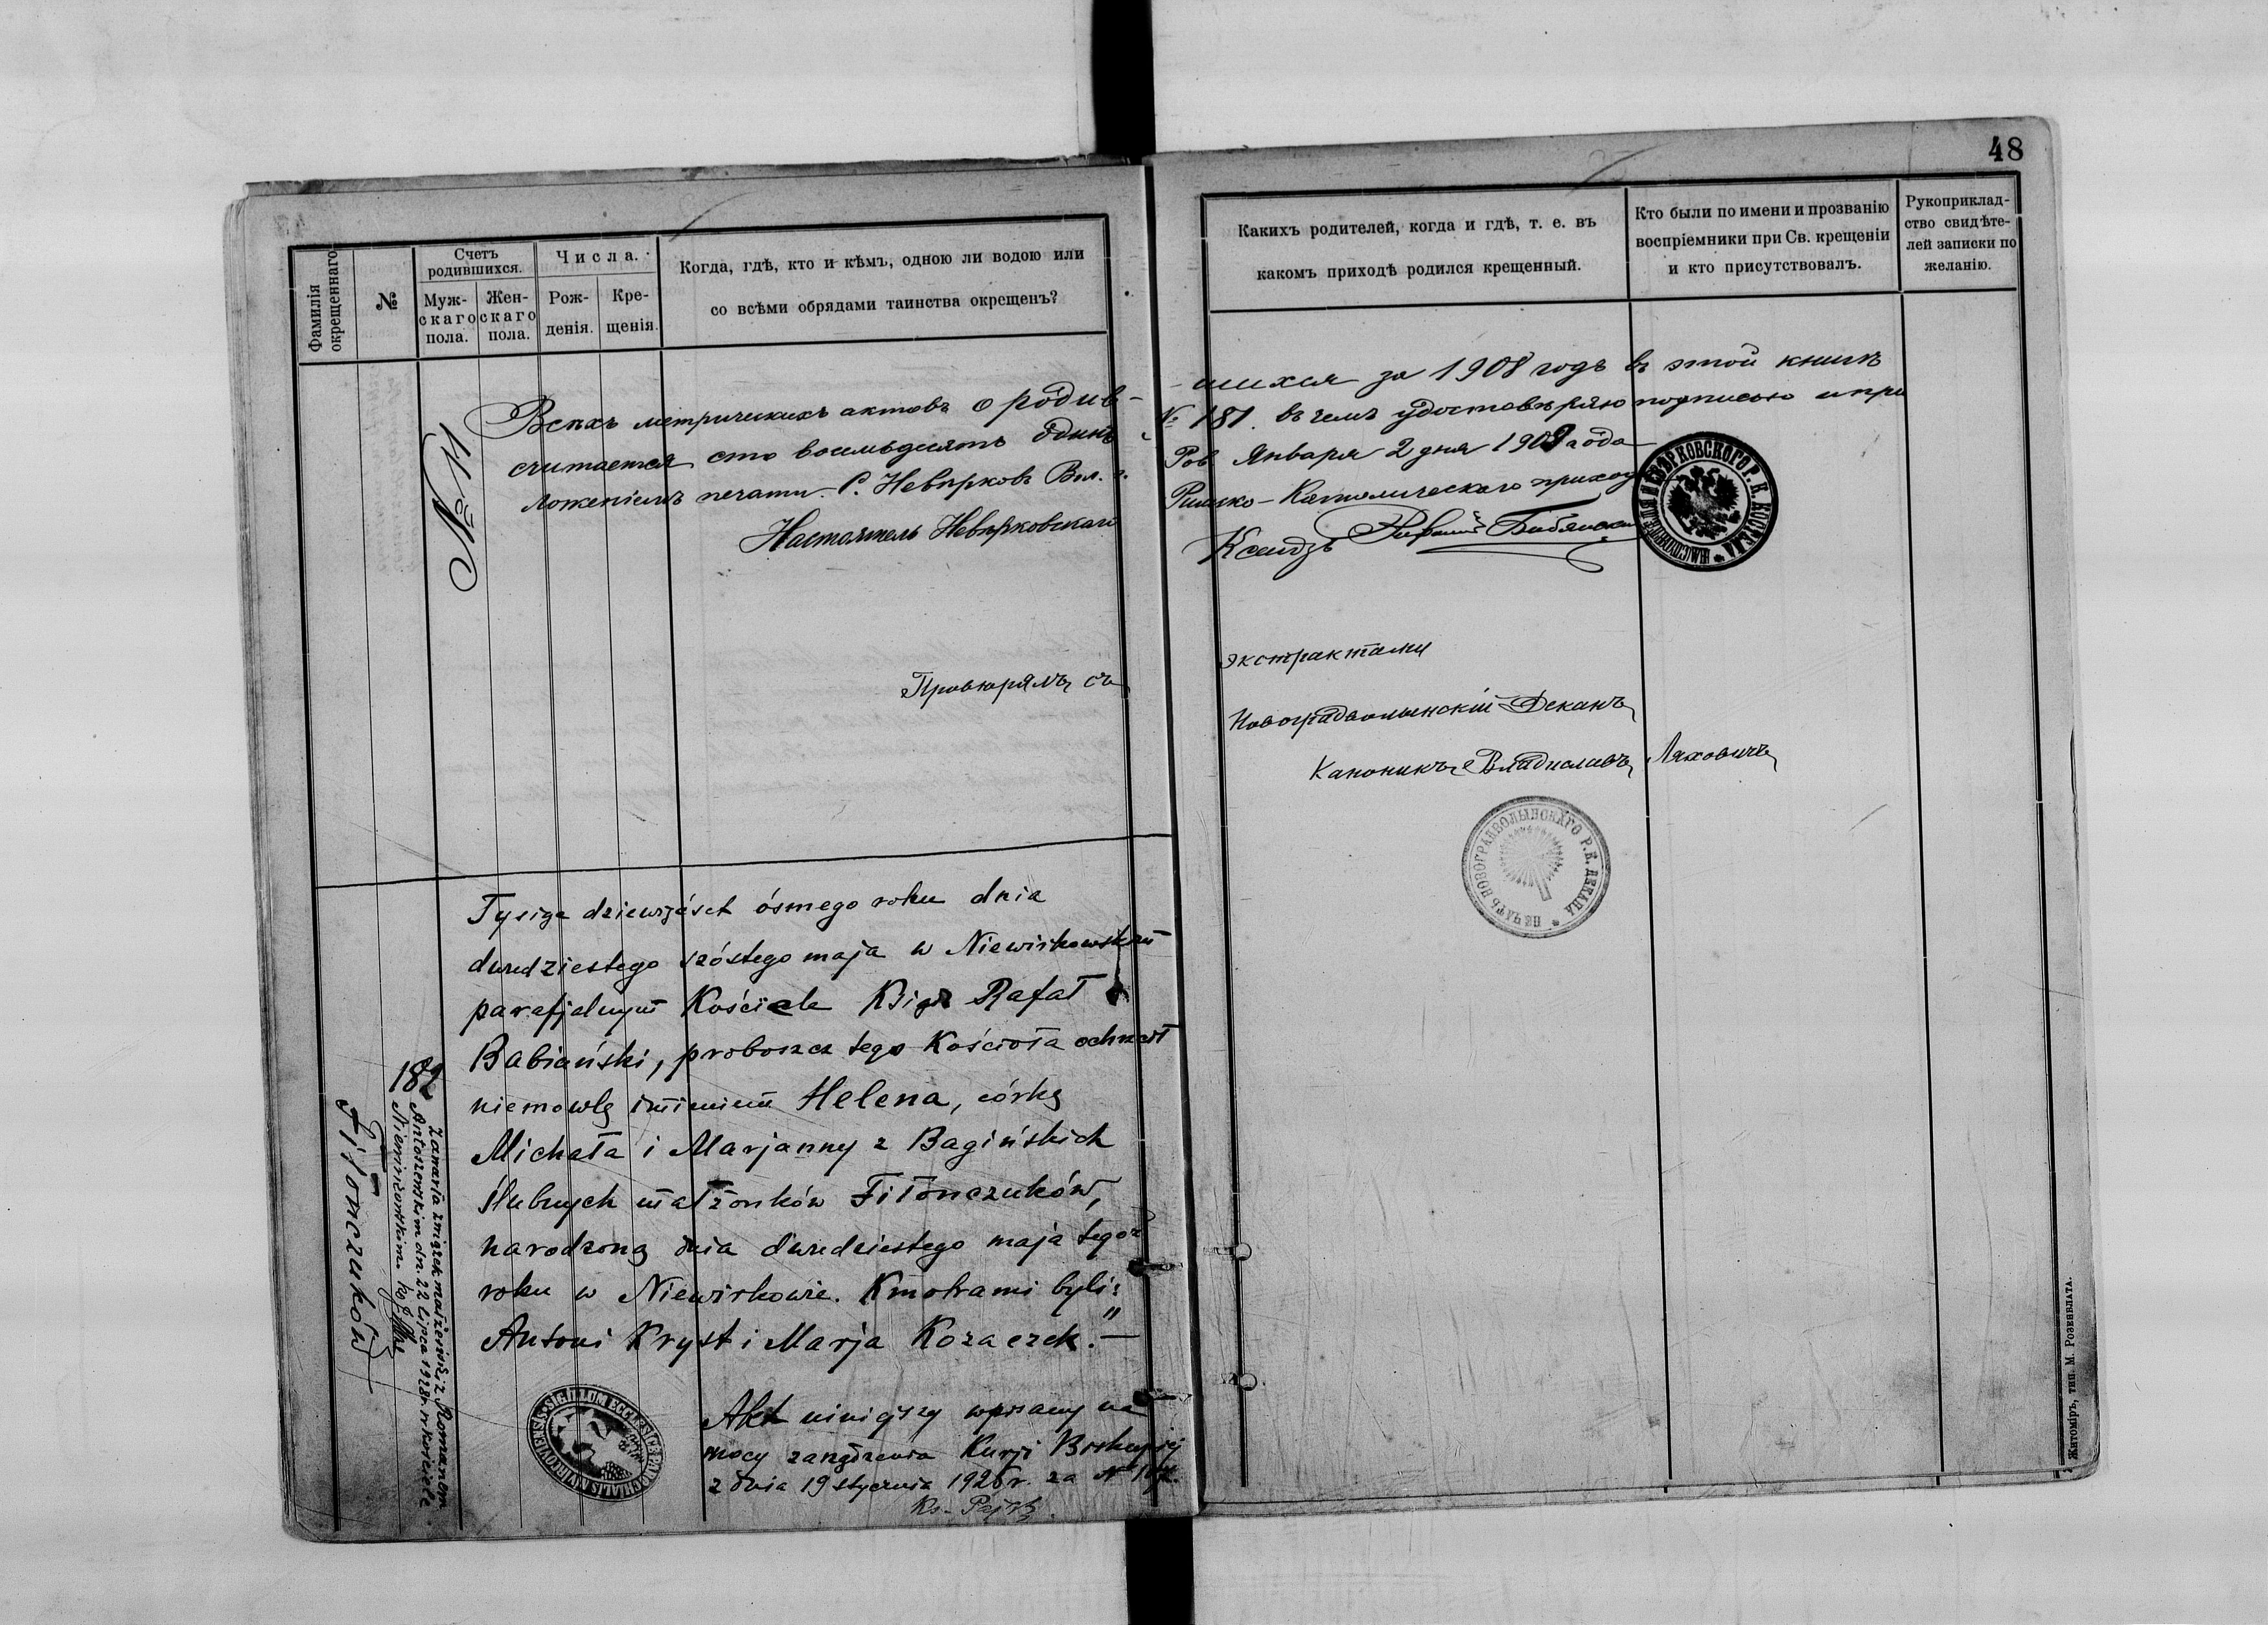 48
Фамилія
окрещеннаго
№
Счетъ
родившихся.
Муж-
скаго
пола.
Жен-
скаго
пола.
Числа.
Рож-
денія.
Кре-
щенія.
Когда, гдѣ, кто и кѣмъ, одною ли водою или
со всѣми обрядами таинства окрещенъ?
Какихъ родителей, когда и гдѣ, т. е. въ
какомъ приходѣ родился крещенный.
Кто были по имени и прозванію
воспріемники при Св. крещеніи
и кто присутствовалъ.
Рукоприклад-
ство свидѣте-
лей записки по
желанію.
Всѣхъ метрическихъ актовъ о родив-
шихся за 1908 годъ въ этой книгѣ
считается сто восемьдесятъ одинъ
№ 181. въ чемъ удостовѣряю подписью и при
ложеніемъ печати. С. Невѣрковъ Вол. г.
Ров. Января 2 дня 1909 года
Настоятель Невѣрковскаго
Римско-Католическаго прихода
Ксендзъ Рафаилъ Бабянскій
Провѣрялъ съ
экстрактами
Новоградволынскій Деканъ
Каноникъ Владиславъ Ляховичъ
ПЕЧАТЬ НОВОГРАДВОЛЫНСКАГО Р. К. ДЕКАНА
Tysiąc dziewięćset ósmego roku dnia
dwudziestego szóstego maja w Niewirkowskim
parafjalnym Kościele Ksiądz Rafał
Babiański, proboszcz tego Kościoła ochrzcił
niemowlę imieniem Helena, córkę
Michała i Marjanny z Bagińskich
ślubnych małżonków Fitonczuków,
narodzoną dnia dwudziestego maja tegoż
roku w Niewirkowie. Kmotrami byli:
Antoni Kryst i Marja Kozaczek.
182
Fitonczuków
Zawarła związek małżeński z Romanem
Antoszewskim dn. 22 lipca 1928 r. w kościele
Niewirkowskim.
Akt niniejszy wpisany na
mocy zarządzenia Kurji Biskupiej
z dnia 19 stycznia 1926 r. za №
Житоміръ, тип. М. Розенблата.